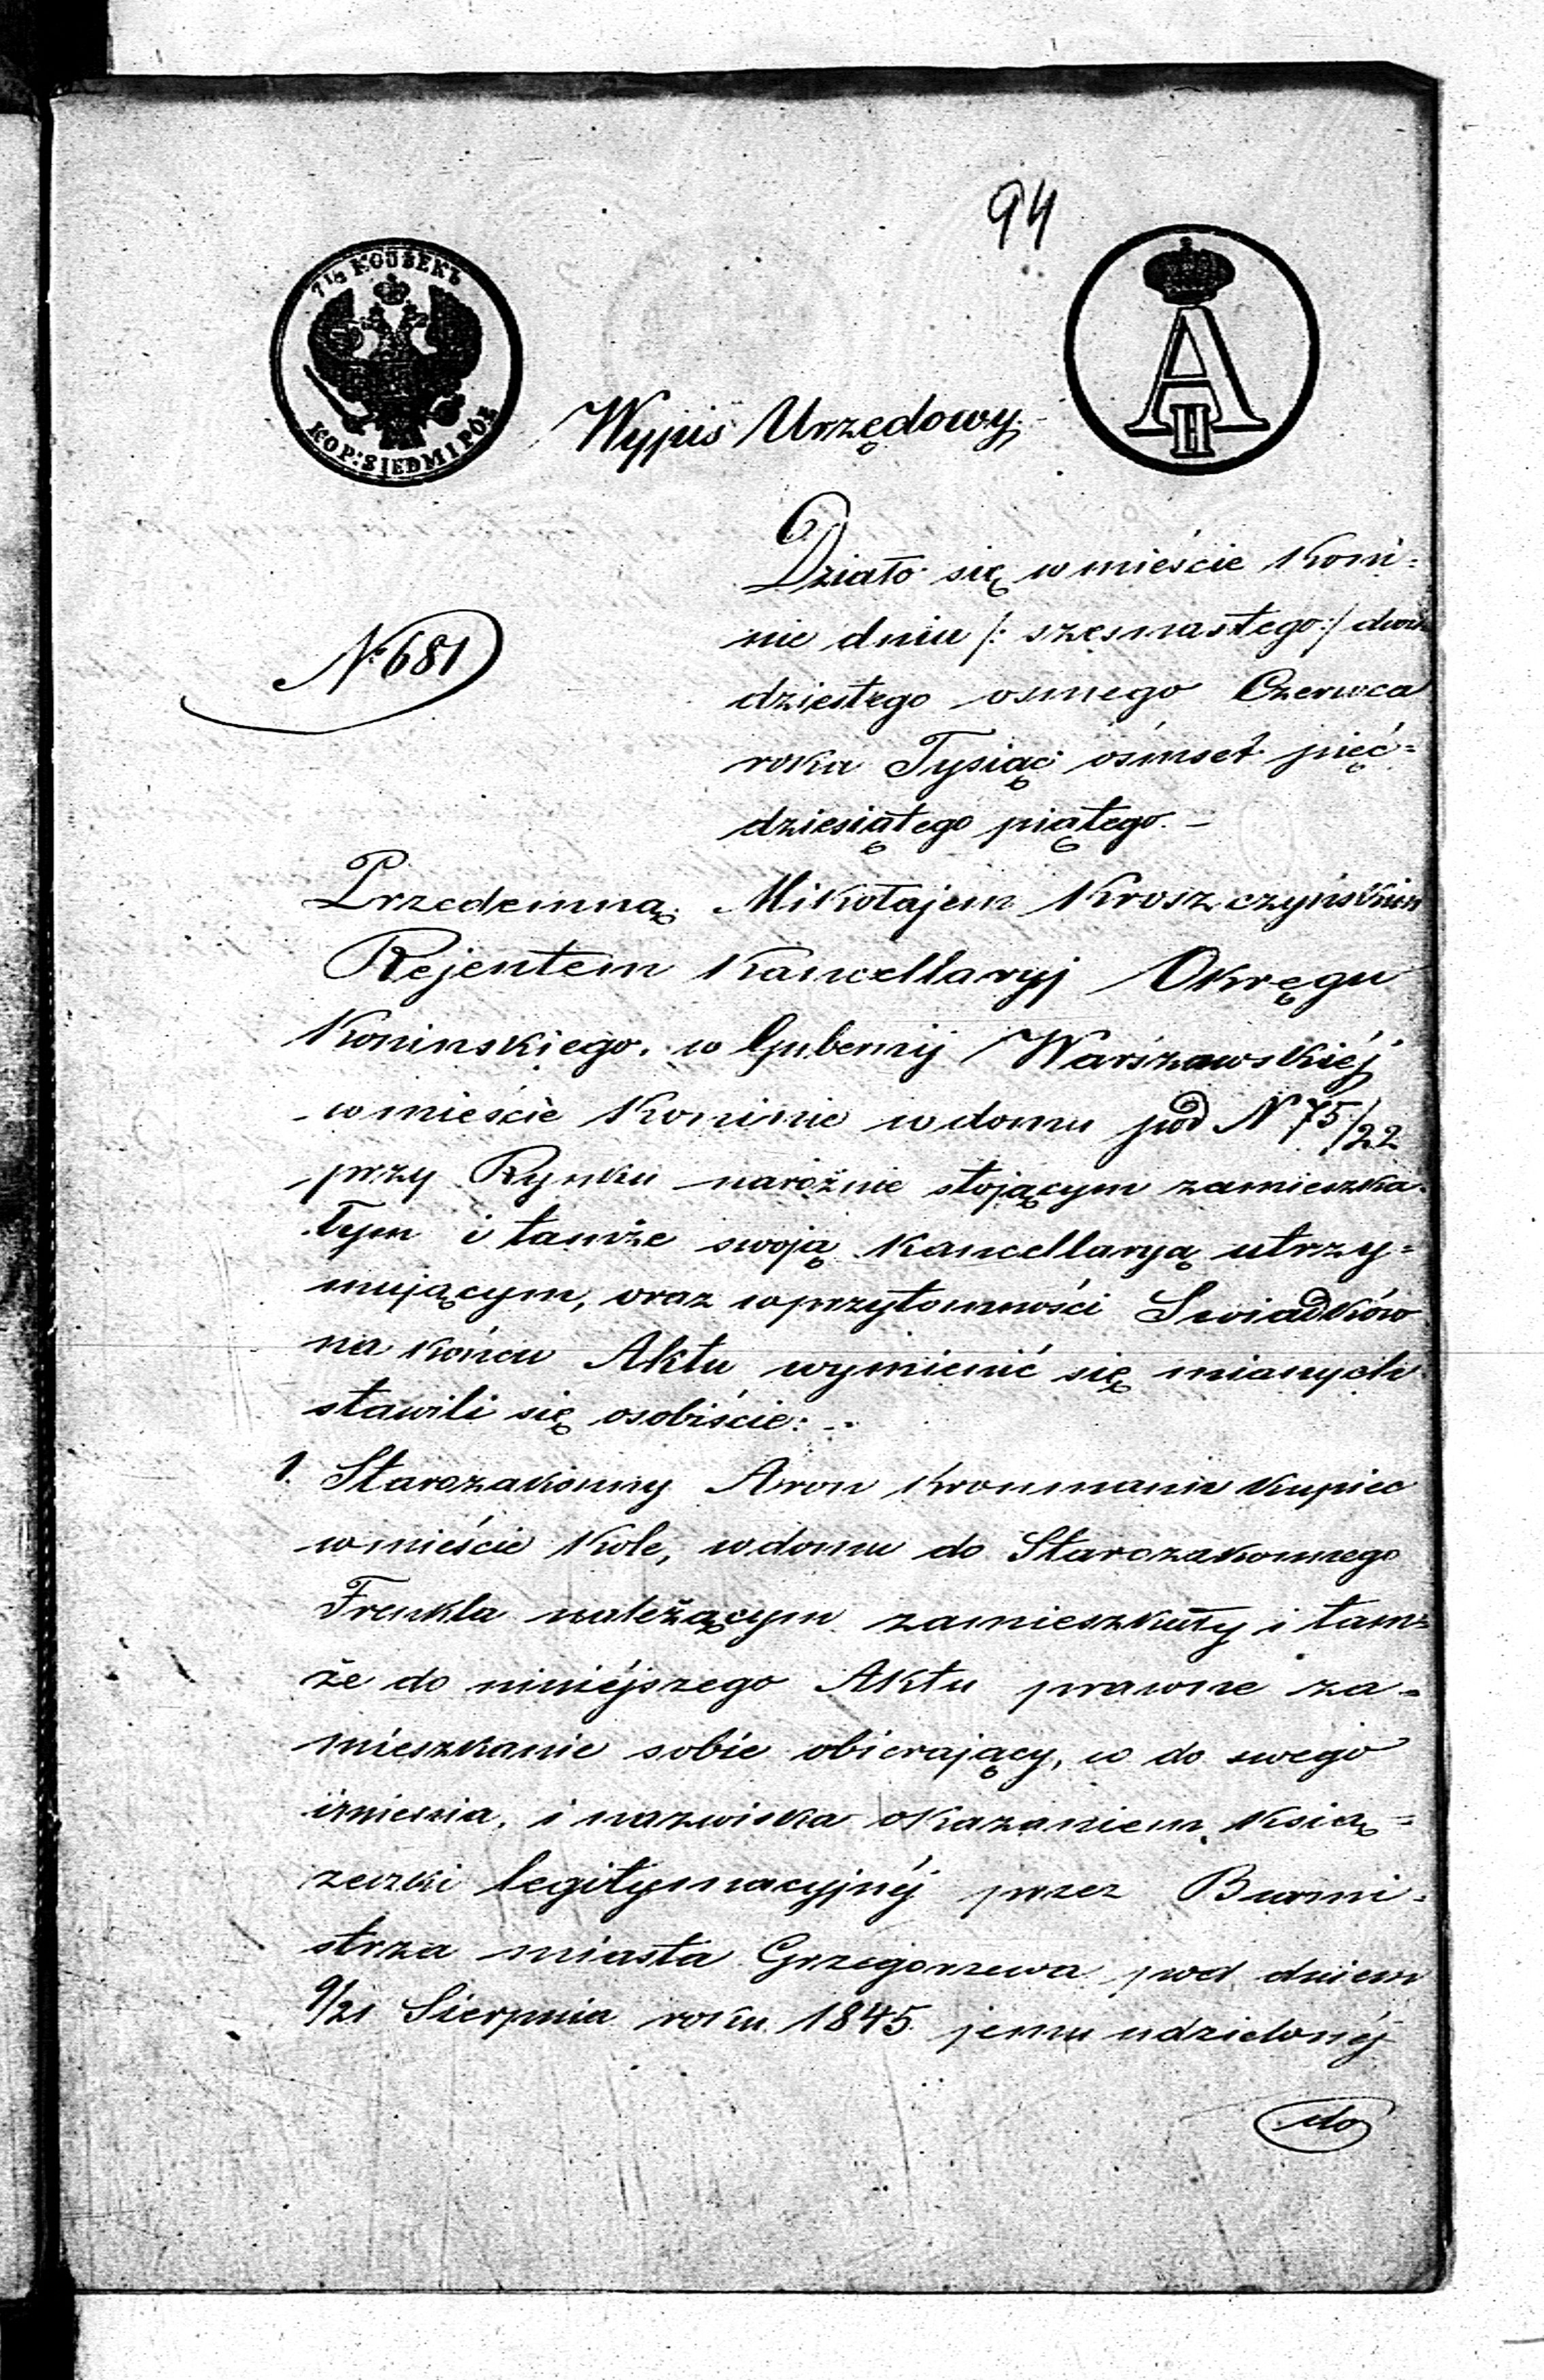 94
7½ КОПѢЕКЪ
KOP: SIEDM I PÓŁ
A II
Wypis Urzędowy.
Działo się w mieście Koni=
nie dniu /: szesnastego :/ dwu
dziestego osmego Czerwca
roku Tysiąc ośmset pięć=
dziesiątego piątego. –
№ 681
Przedemną Mikołajem Kroszczyńskim
Rejentem Kancellaryj Okręgu
Koninskiego. w Gubernij Warszawskiéj
w mieście Koninie w domu pod N 75/22
przy Rynku narożnie stojącym zamieszka=
łym i tamże swoją Kancellaryą utrzy=
mującym, oraz w przytomności Swiadków
na końcu Aktu wymienić się mianych
stawili się osobiście: –
1. Starozakonny Aron Kronmann Kupiec
w mieście Kole, w domu do Starozakonnego
Frenkla należącym zamieszkały i tam=
że do niniéjszego Aktu prawne za=
mieszkanie sobie obierający, w do swego
imienia, i nazwiska okazaniem Ksią=
żeczki legitymacyjnéj przez Burmi=
strza miasta Grzegorzewa pod dniem
9/21 Sierpnia roku 1845 jemu udzielonéj
do